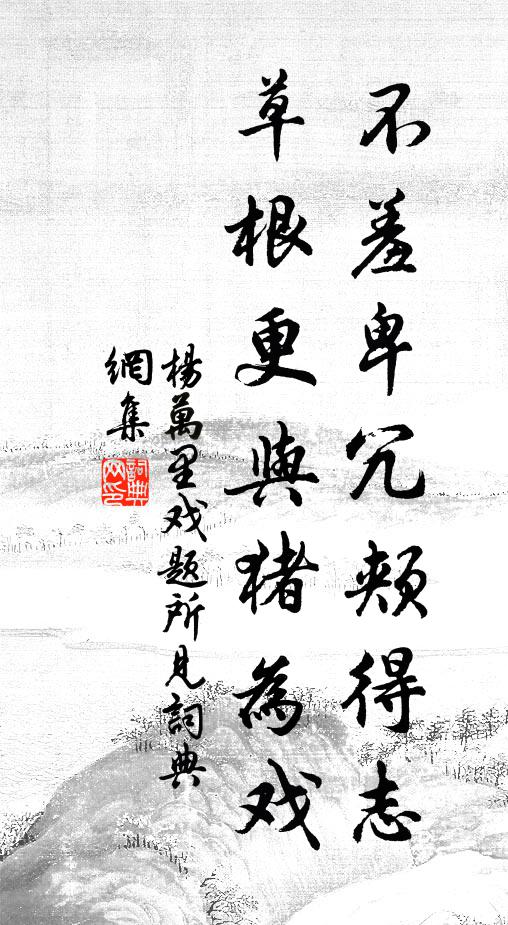 不羞卑冗頰得志
草根更與猪為戏
楊萬里戏题所見詞典
網集
詞典
网印